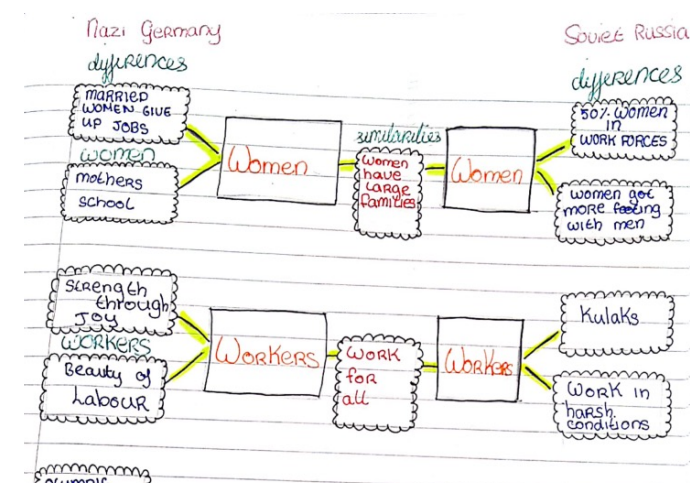 Nazi Germany
Soviet Russia
differences
differences
MARRIED
WOMEN GIVE
UP JOBS
women
mothers
school
Women
similarities
Women
have
large
families
Women
50% women
in
WORK FORCES
women got
more footing
with men
Strength
through
Joy
WORKERS
Beauty of
Labour
WORKERS
WORK
for
all
WORKERS
Kulaks
WORK in
harsh
conditions